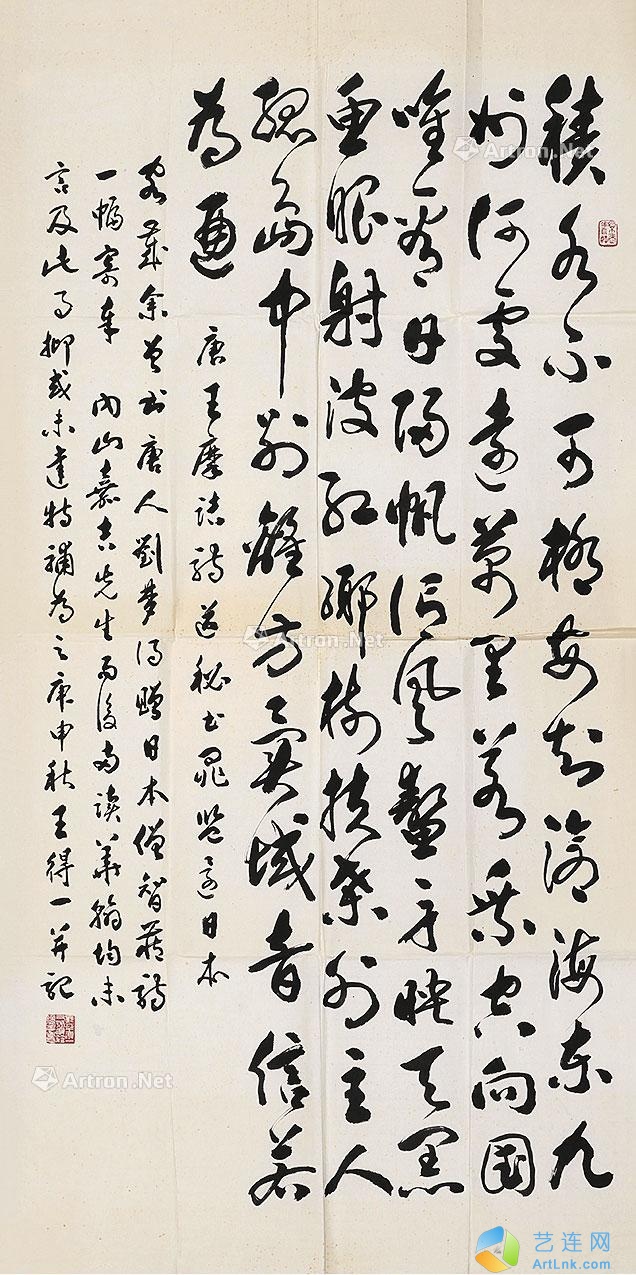 積水不可極安知滄海東九
州何處遠萬里若乘空向國
唯看日歸帆信風鰲身映天黑
魚眼射波紅鄉樹扶桑外主人
孤島中別離方異域音信若
為通 唐王摩詰詩送秘書晁監還日本
客歲余曾書唐人劉夢得贈日本僧智藏詩
一幅寄奉 內山嘉吉先生而後兩讀華翰均未
言及此事抑或未達特補為之庚申秋王得一并記
Artron.Net
Artron.Net
Artron.Net
Artron.Net
艺连网
ArtLnk.Com